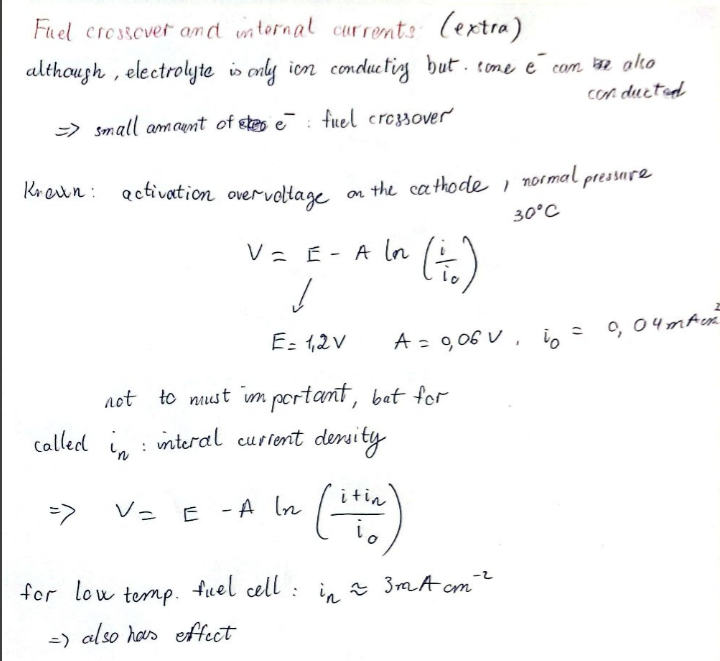 Fuel crossover and internal currents (extra)
although, electrolyte is only ion conducting but. some e⁻ can be also
conducted
=> small amount of e⁻ : fuel crossover
Known: activation overvoltage on the cathode, normal pressure
30°C
V = E - A ln (i/i₀)
E = 1,2 V A = 0,06 V, i₀ = 0,04 mA cm²
not to must important, but for
called iₙ : interal current density
=> V = E - A ln (i+iₙ/i₀)
for low temp. fuel cell : iₙ ≈ 3mA cm⁻²
=> also has effect